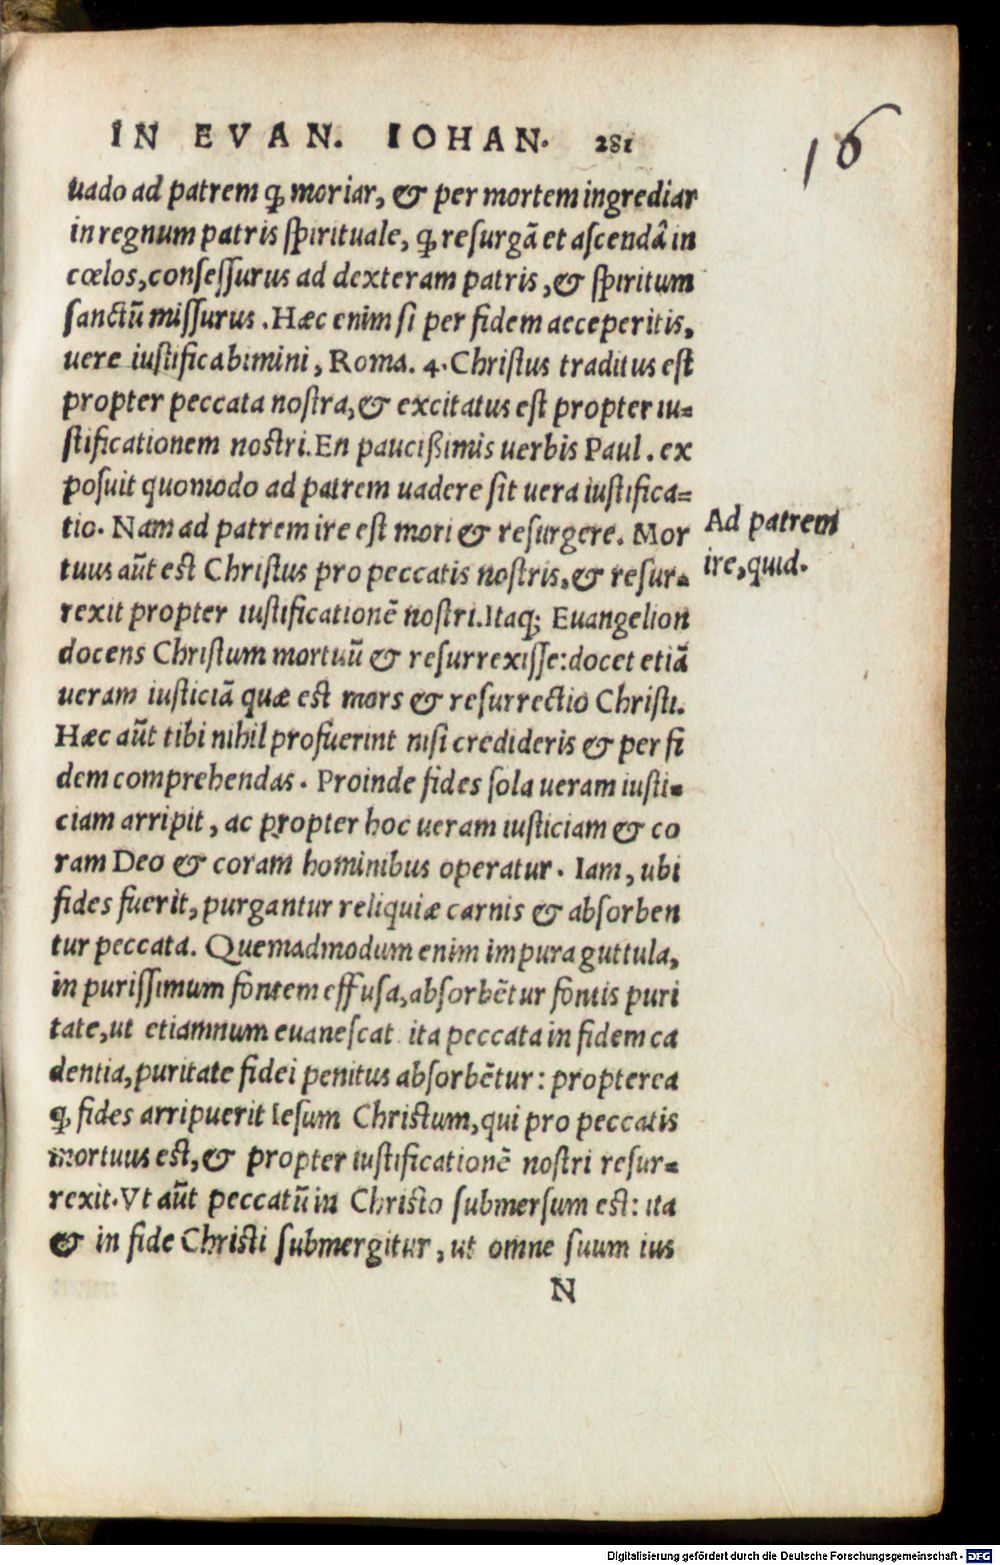 IN EVAN. IOHAN. 281
16
uado ad patrem ꝙ moriar, & per mortem ingrediar
in regnum patris ſpirituale, ꝙ reſurgã et aſcendâ in
cœlos, conſeſſurus ad dexteram patris, & ſpiritum
ſanctũ miſſurus. Hæc enim ſi per fidem acceperitis,
uere iuſtificabimini, Roma. 4. Chriſtus traditus eſt
propter peccata noſtra, & excitatus eſt propter iu-
ſtificationem noſtri. En pauciſsimis uerbis Paul. ex
poſuit quomodo ad patrem uadere ſit uera iuſtifica-
tio. Nam ad patrem ire eſt mori & reſurgere. Mor
tuus aũt eſt Chriſtus pro peccatis noſtris, & reſur-
rexit propter iuſtificationẽ noſtri. Itaq; Euangelion
docens Chriſtum mortuũ & reſurrexiſſe: docet etiã
ueram iuſticiã quæ eſt mors & reſurrectio Chriſti.
Hæc aũt tibi nihil profuerint niſi credideris & per fi
dem comprehendas. Proinde fides ſola ueram iuſti-
ciam arripit, ac propter hoc ueram iuſticiam & co
ram Deo & coram hominibus operatur. Iam, ubi
fides fuerit, purgantur reliquiæ carnis & abſorben
tur peccata. Quemadmodum enim impura guttula,
in puriſſimum fontem effuſa, abſorbẽtur fontis puri
tate, ut etiamnum euaneſcat ita peccata in fidem ca
dentia, puritate fidei penitus abſorbẽtur: propterea
ꝙ fides arripuerit Ieſum Chriſtum, qui pro peccatis
mortuus eſt, & propter iuſtificationẽ noſtri reſur-
rexit. Vt aũt peccatũ in Chriſto ſubmerſum eſt: ita
& in fide Chriſti ſubmergitur, ut omne ſuum ius
N
Ad patrem
ire, quid.
Digitalisierung gefördert durch die Deutsche Forschungsgemeinschaft - DFG